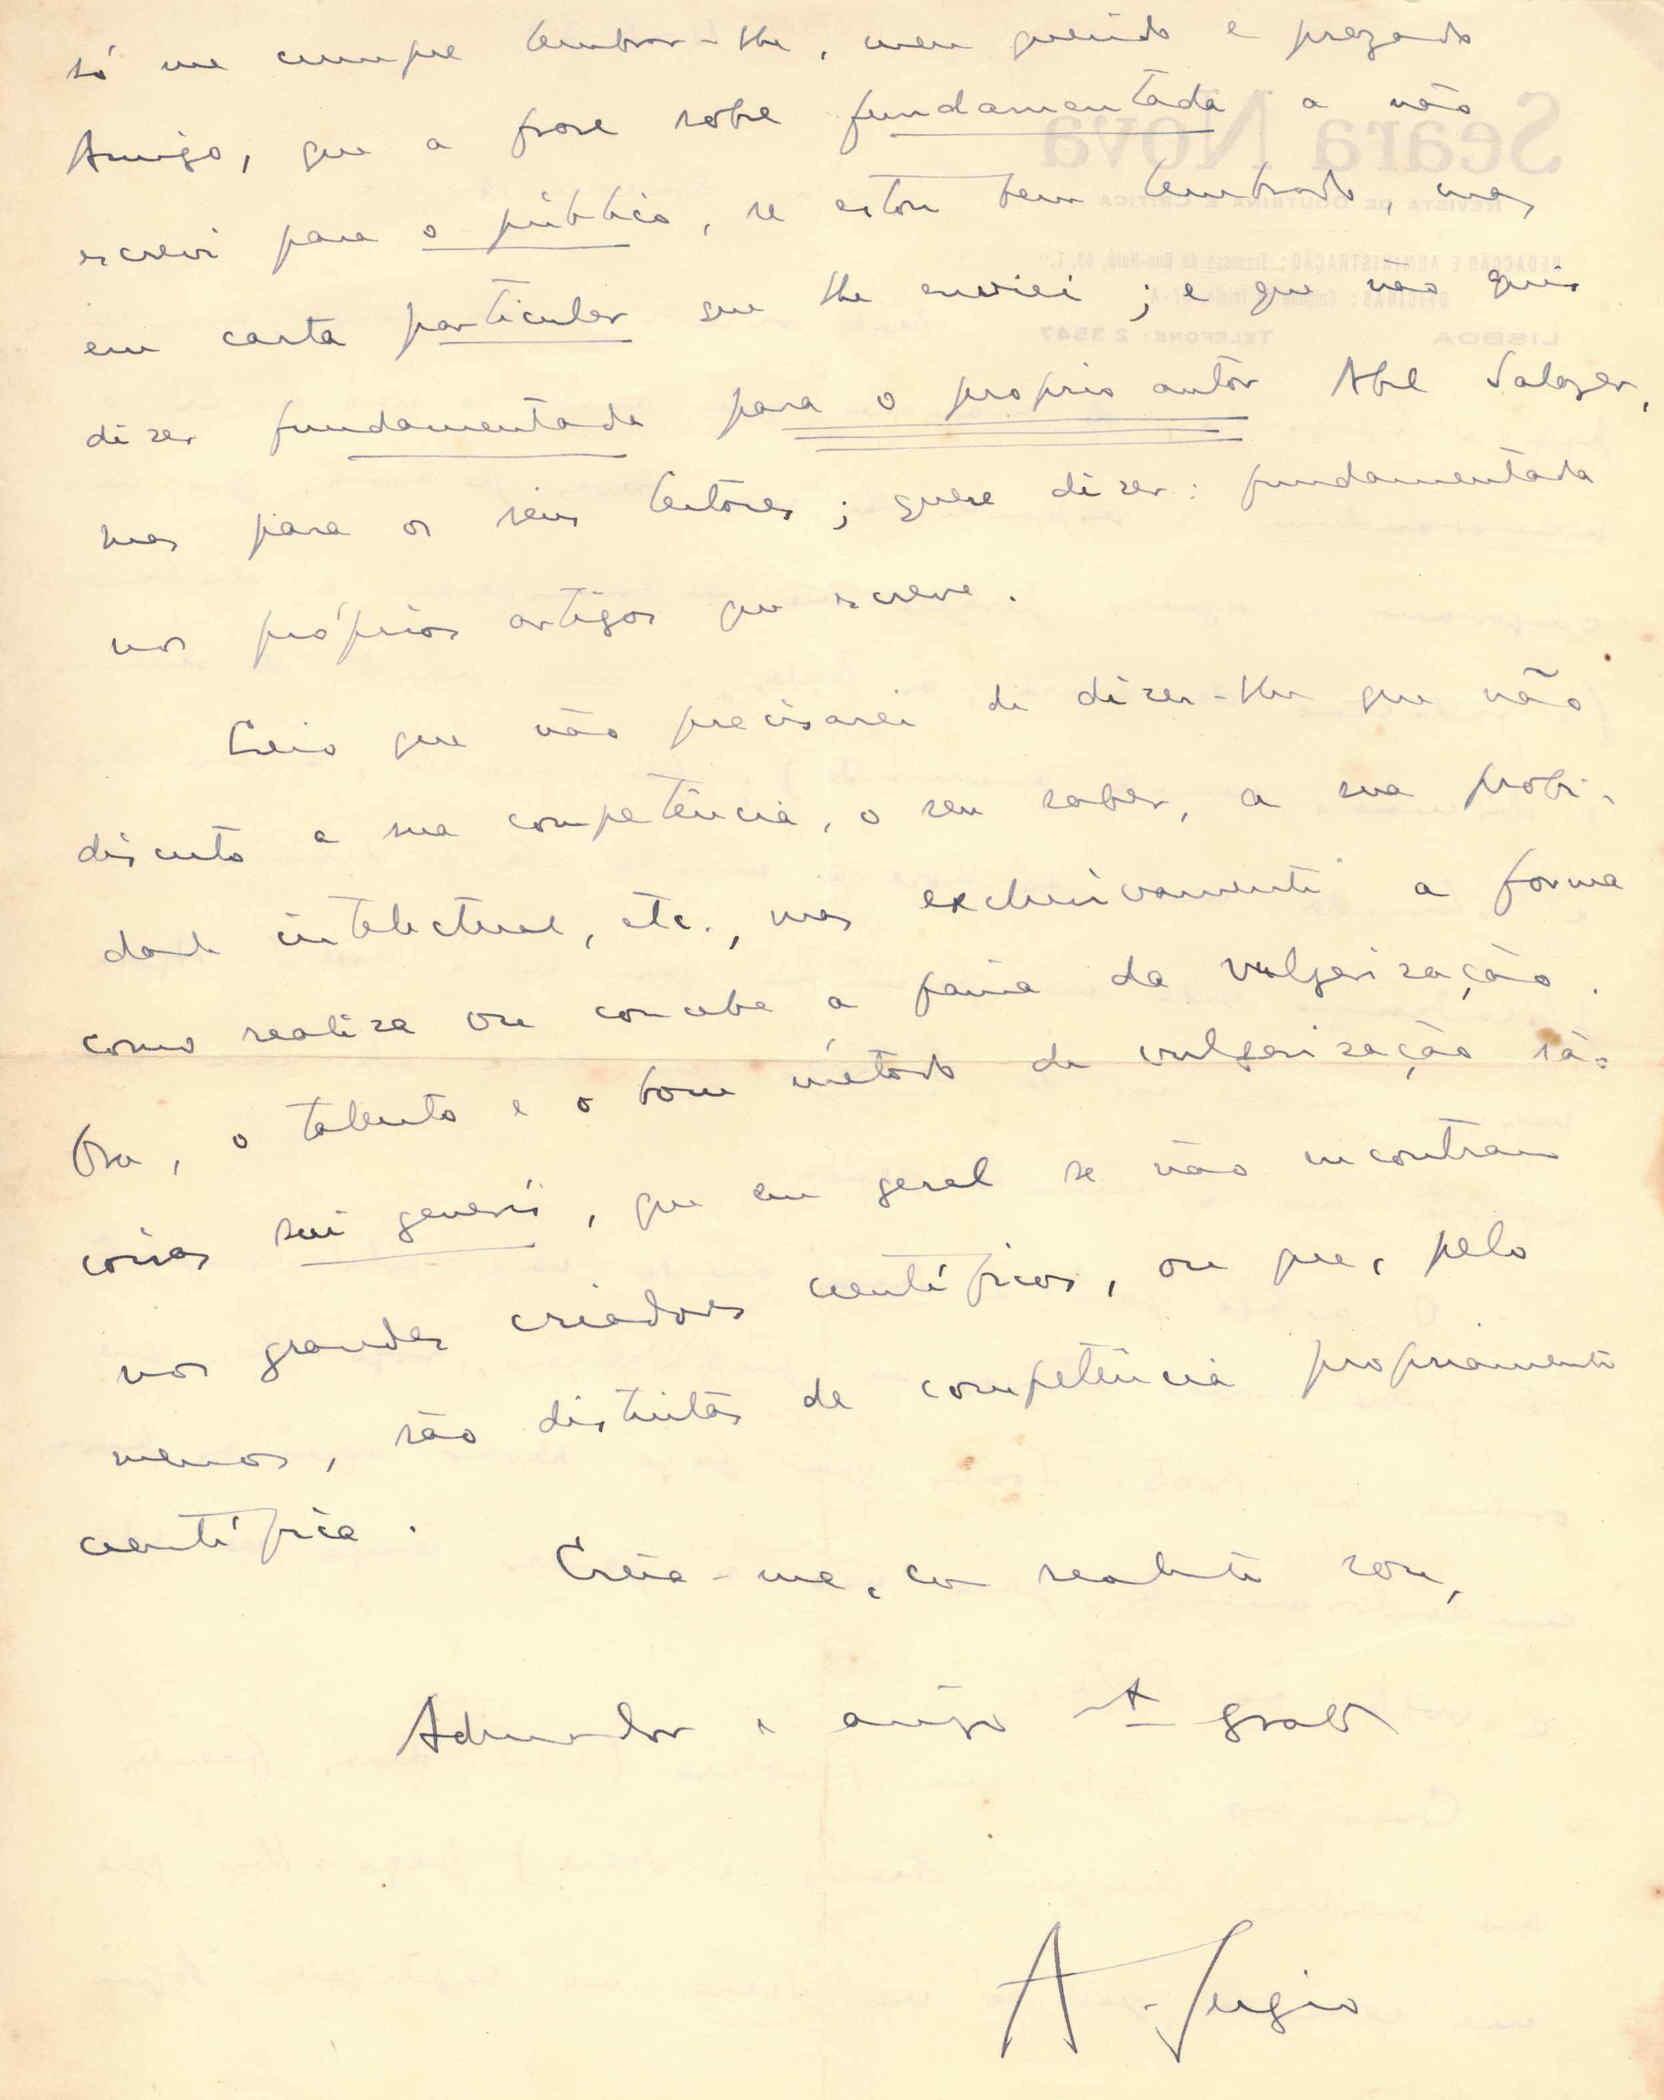 só me cumpre lembrar-lhe, meu querido e prezado
Amigo, que a frase sobre fundamentada a não
escrevi para o público, se estou bem lembrado, mas
em carta particular que lhe enviei; e que não quis
dizer fundamentada para o proprio autôr Abel Salazar,
mas para os seus leitores; quere dizer: fundamentada
nos próprios artigos que escreve.
Creio que não precisarei de dizer-lhe que não
discuto a sua competência, o seu saber, a sua probi-
dade intelectual, etc., mas exclusivamente a forma
como realiza ou concebe a faina da vulgarização.
Ora, o talento e o bom método de vulgarização são
coisas sui generis, que em geral se não encontram
nos grandes criadores científicos, ou que, pelo
menos, são distintas de competência propriamente
científica.
Creia-me, com realmente sou,
Admirador e amigo mto grato
A. Sergio
Seara Nova
REVISTA DE DOUTRINA E CRÍTICA
LISBOA
TELEFONE: 2 3547